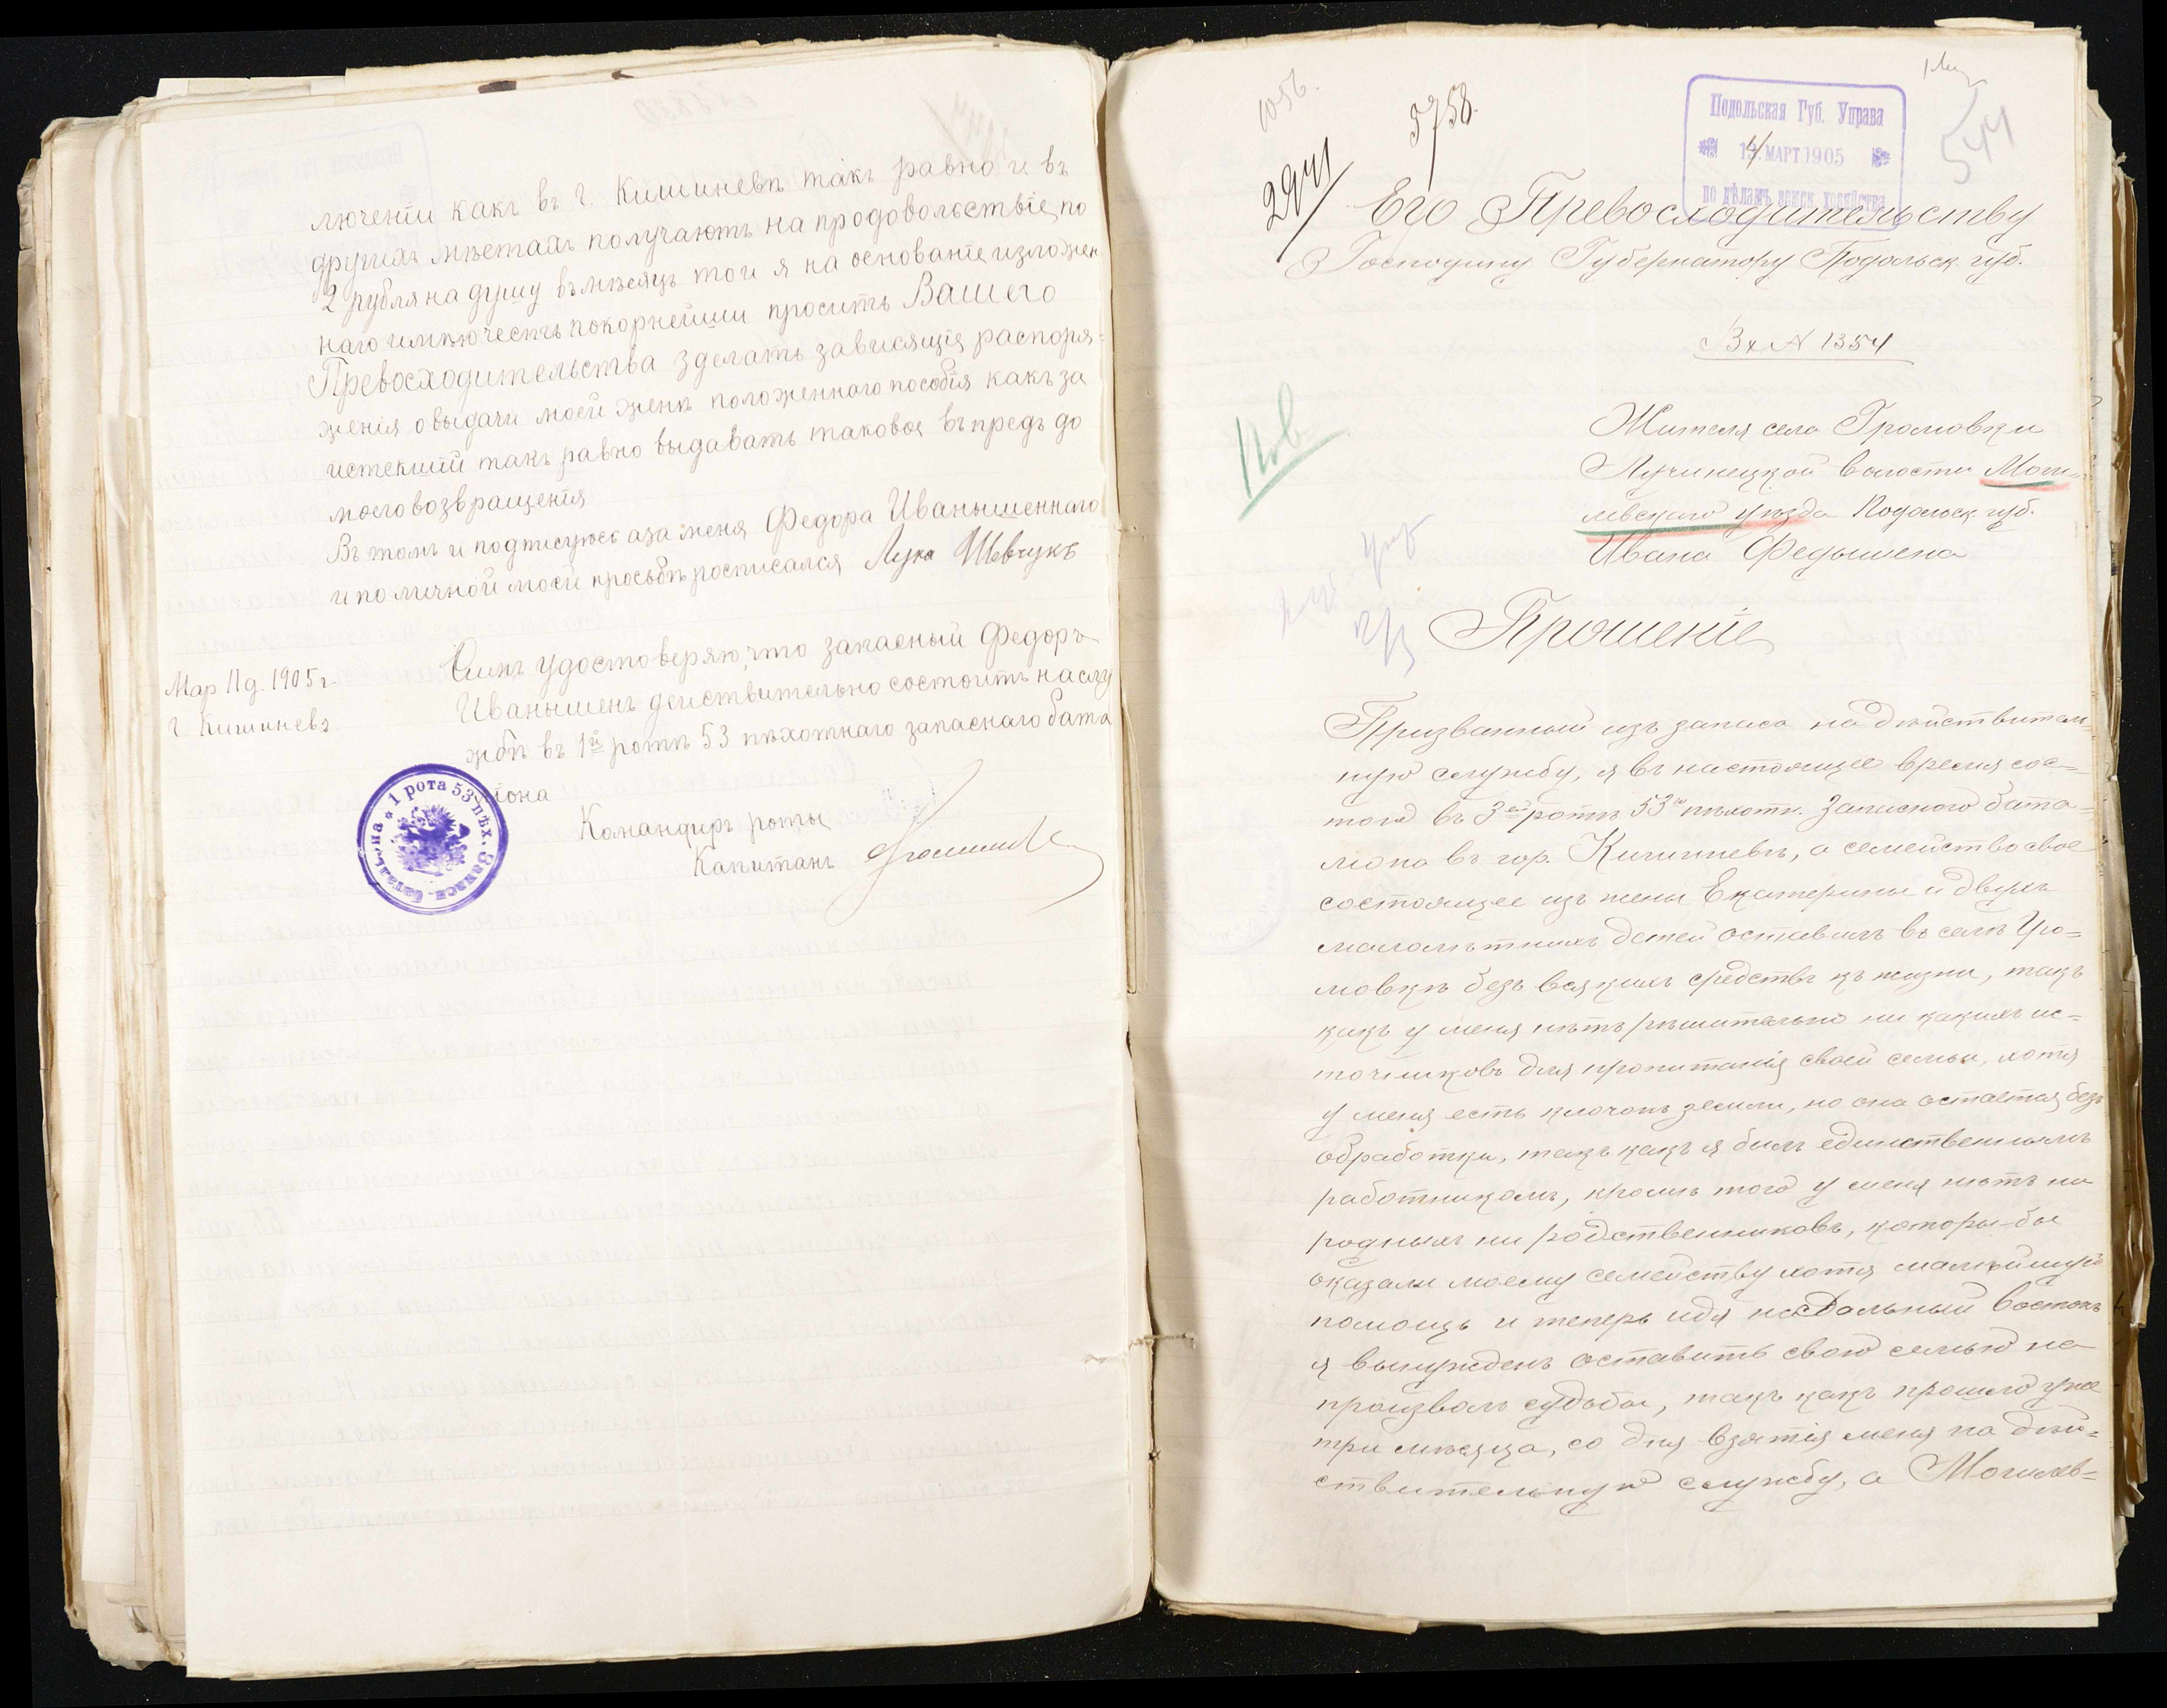 люченіи какъ въ г. Кишиневѣ такъ равно и въ
другихъ мѣстахъ получаютъ на продовольствіе, по
2 рубля на душу въ мѣсяцъ то и я на основаніе изложен
наго имѣю честь покорнейши просить Вашего
Превосходительства зделать зависящія распоря=
женія о выдачи моей женѣ положеннаго пособія какъ за
истекшій такъ равно выдавать таковоя въ предъ до
моего возвращенія
Въ томъ и подписуюсь а за меня Федора Иванышеннаго
и по личной моей просьбѣ росписался Лука Шевчукъ
Мар 11 д. 1905 г.
г. Кишиневъ
Симъ удостоверяю, что запасный Федоръ
Иванышенъ действительно состоитъ на слу
жбѣ въ 1й ротѣ 53 пѣхотнаго запаснаго бата
ліона
Командиръ роты
Капитанъ
1 рота 53 пѣх. Запасн. баталіона
1056.
5758.
2971
Подольская Губ. Управа
14 МАРТ 1905
по дѣламъ воинск. хозяйства
544
Его Превосходительству
Господину Губернатору Подольск. губ.
Вх N 1354
Жителя села Громовки
Лучинецкой волости Моги-
левскаго уѣзда Подольск. губ.
Ивана Федышена
Прошеніе
Призванный изъ запаса на дѣйствитель-
ную службу, я въ настоящее время сос=
тою въ 3ей ротѣ 53го пѣхотн. Запасного бата=
ліона въ гор. Кишиневѣ, а семейство свое
состоящее изъ жены Екатерины и двухъ
малолѣтнихъ детей оставилъ въ селѣ Гро=
мовкѣ безъ всякихъ средствъ къ жизни, такъ
какъ у меня нѣтъ рѣшительно ни какихъ ис=
точниковъ для пропитанія своей семьи, хотя
у меня есть клочокъ земли, но она остается безъ
обработки, такъ какъ я былъ единственнымъ
работникомъ, кромѣ того у меня нѣтъ ни
родныхъ ни родственниковъ, которы-бы
оказали моему семейству хотя малѣйшую
помощь и теперь идя на Дальный востокъ
я вынужденъ оставить свою семью на
произволъ судьбы, такъ какъ прошло уже
три мѣсяца, со дня взятія меня на дѣй=
ствительную службу, а Могилев=